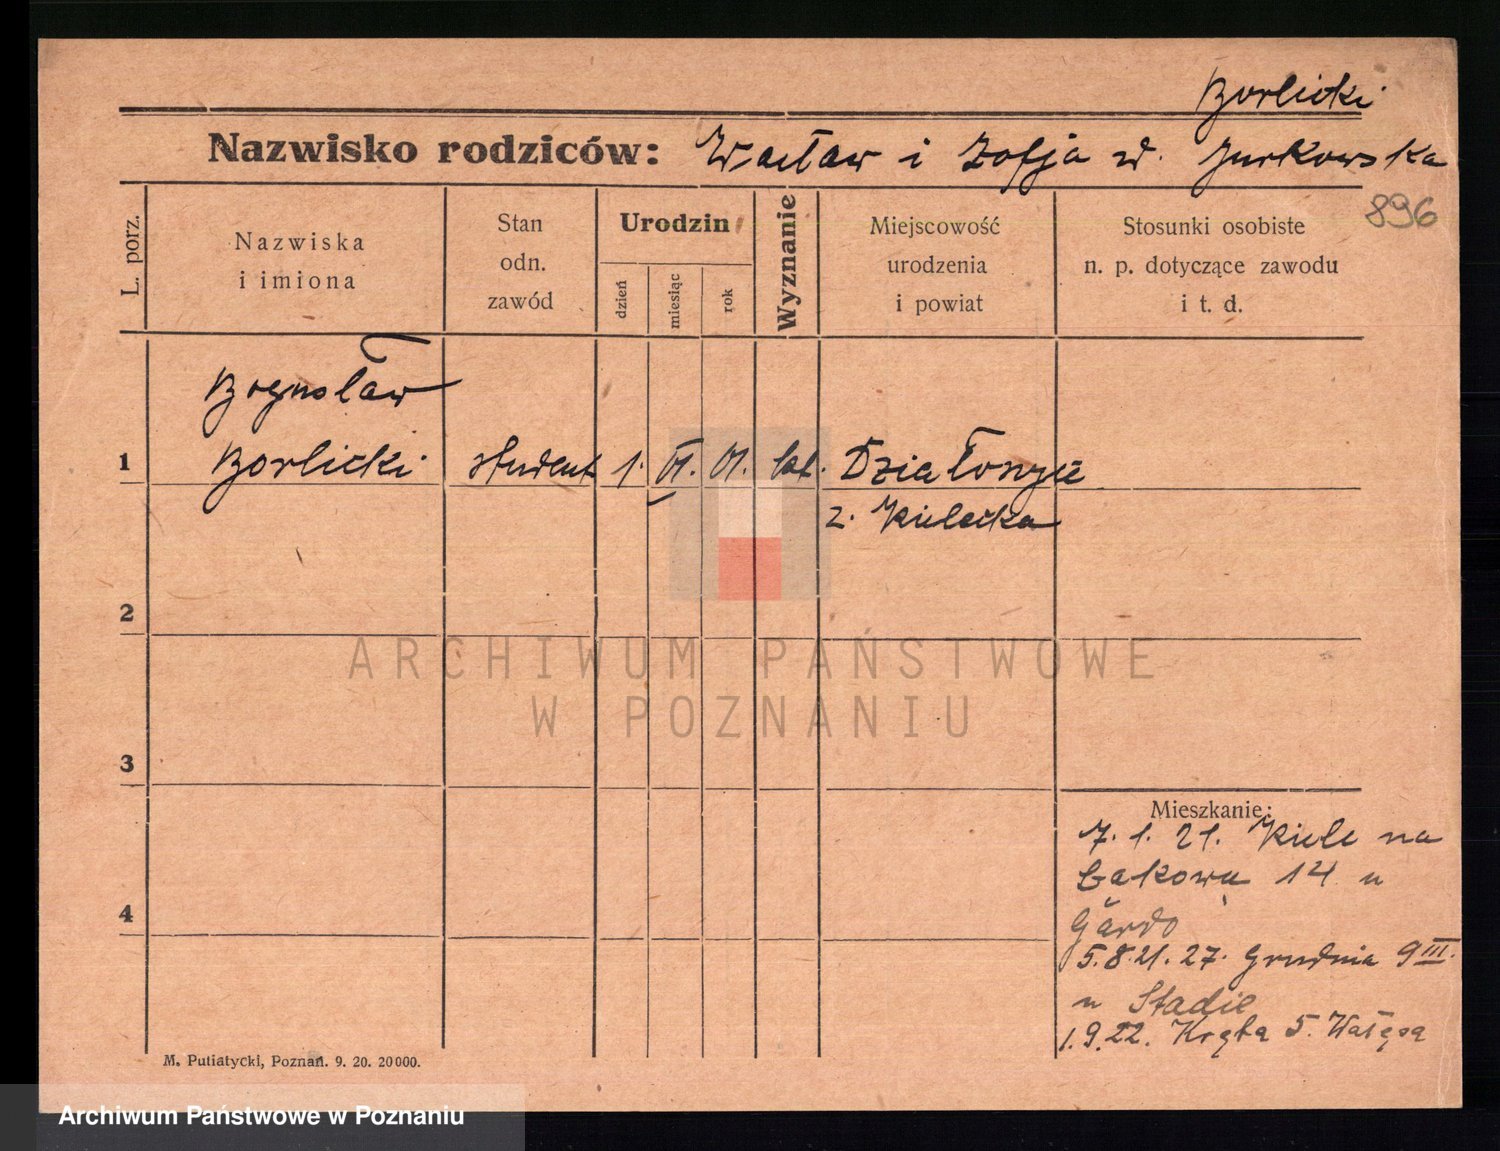 Borlicki
Nazwisko rodziców: Wacław i Zofja z d. Jurkowska
896
L. porz.
Nazwiska
i imiona
Stan
odn.
zawód
Urodzin
dzień
miesiąc
rok
Wyznanie
Miejscowość
urodzenia
i powiat
Stosunki osobiste
n. p. dotyczące zawodu
i t. d.
Bogusław
1 Borlicki student 1. VI. 01. kat. Działoszyce
z. Kielecka
2
ARCHIWUM PAŃSTWOWE
W POZNANIU
3
Mieszkanie:
7. 1. 21. Kielc na
14 u
4
5.8.21. 27. Grudnia 9 III.
u Stadie
1.9.22. Kręta 5. Wałęsa
M. Putiatycki, Poznań. 9. 20. 20000.
Archiwum Państwowe w Poznaniu